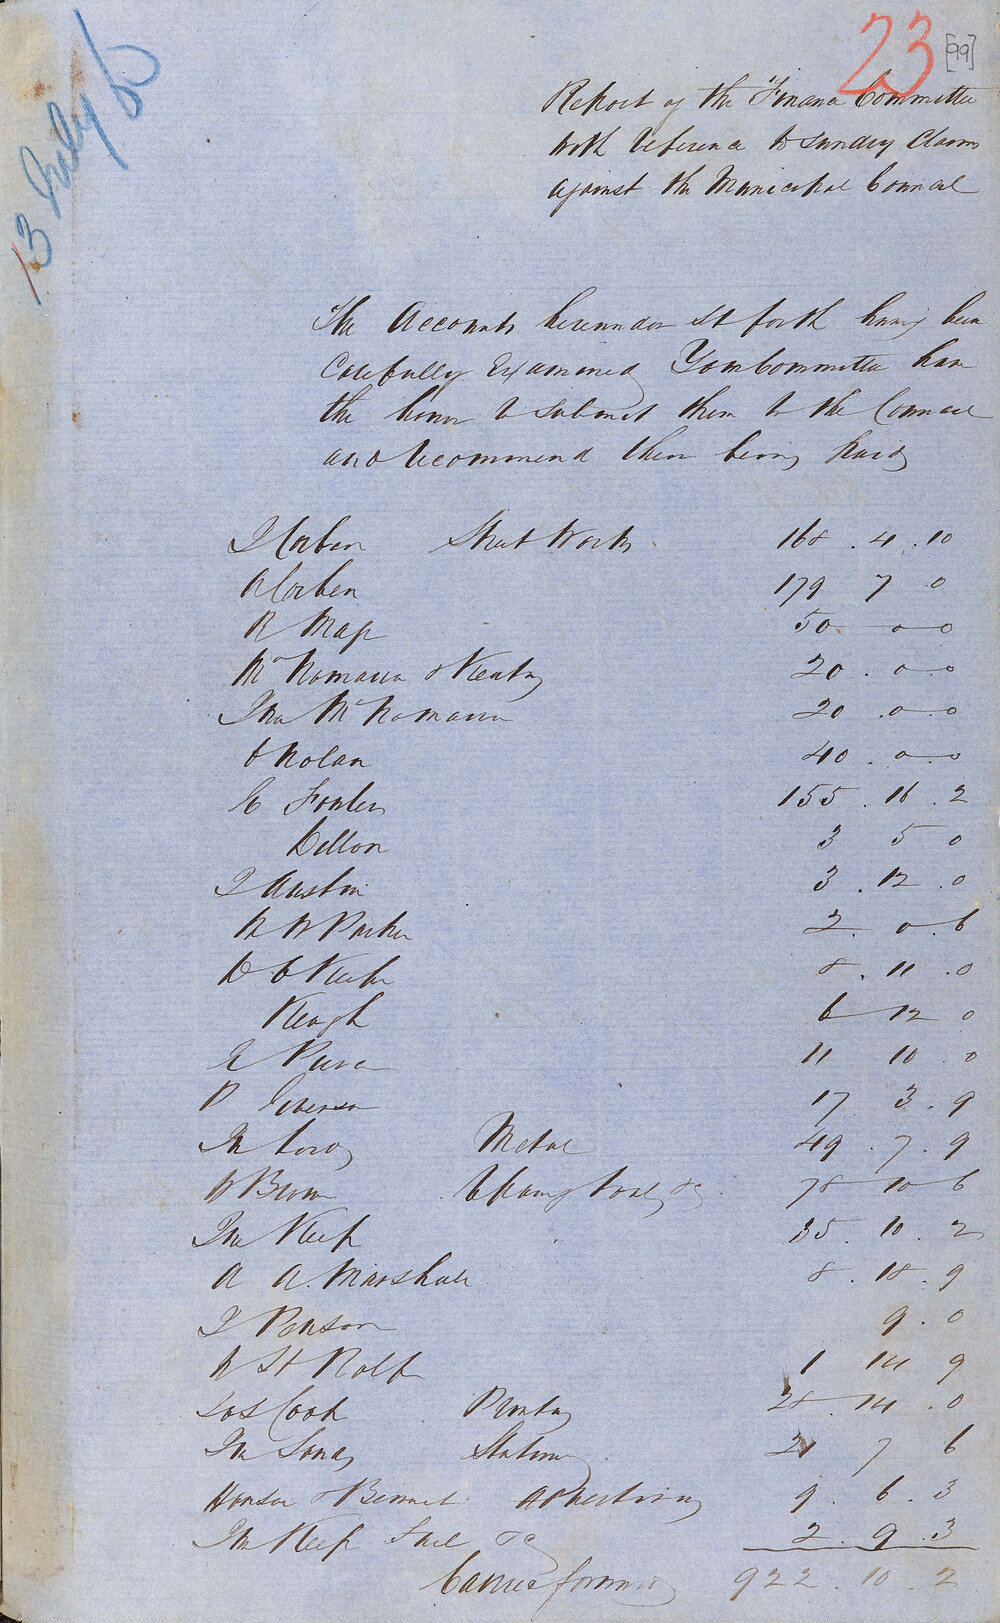 23
[99]
13 July 60
Report of the Finance Committee
with reference to sundry Claims
against the Municipal Council
The Accounts hereunder set forth having been
Carefully Examined Your Committee have
the honor to submit them to the Council
and recommend them being paid
J Corben Street Works 168 . 4 . 10
R Corben 179 7 0
R 50 - 0 - 0
McNamara & Keating 20 . 0 - 0
Jno McNamara 20 . 0 - 0
J Nolan 40 . 0 - 0
C Fowler 155 . 16 . 2
Dillon 3 5 0
J Austin 3 . 12 . 0
R W Parker 2 . 0 . 6
8 . 11 . 0
Keogh 6 12 0
E 11 10 0
P Iverson 17 3 . 9
Jn Metal 49 . 7 . 9
Repairing Tools &c 78 10 6
Jno Keep 35 . 10 . 2
A A. Marshall 8 . 18 . 9
J Penson 9 . 0
W H Rolfe 1 14 9
Jas Cook Printing 28 . 14 . 0
Jno Sands Stationery 21 7 6
Hanson & Bennet Advertising 9 . 6 . 3
Jno Keep Fuel &c 2 . 9 . 3
Carried forward 922 . 10 . 2